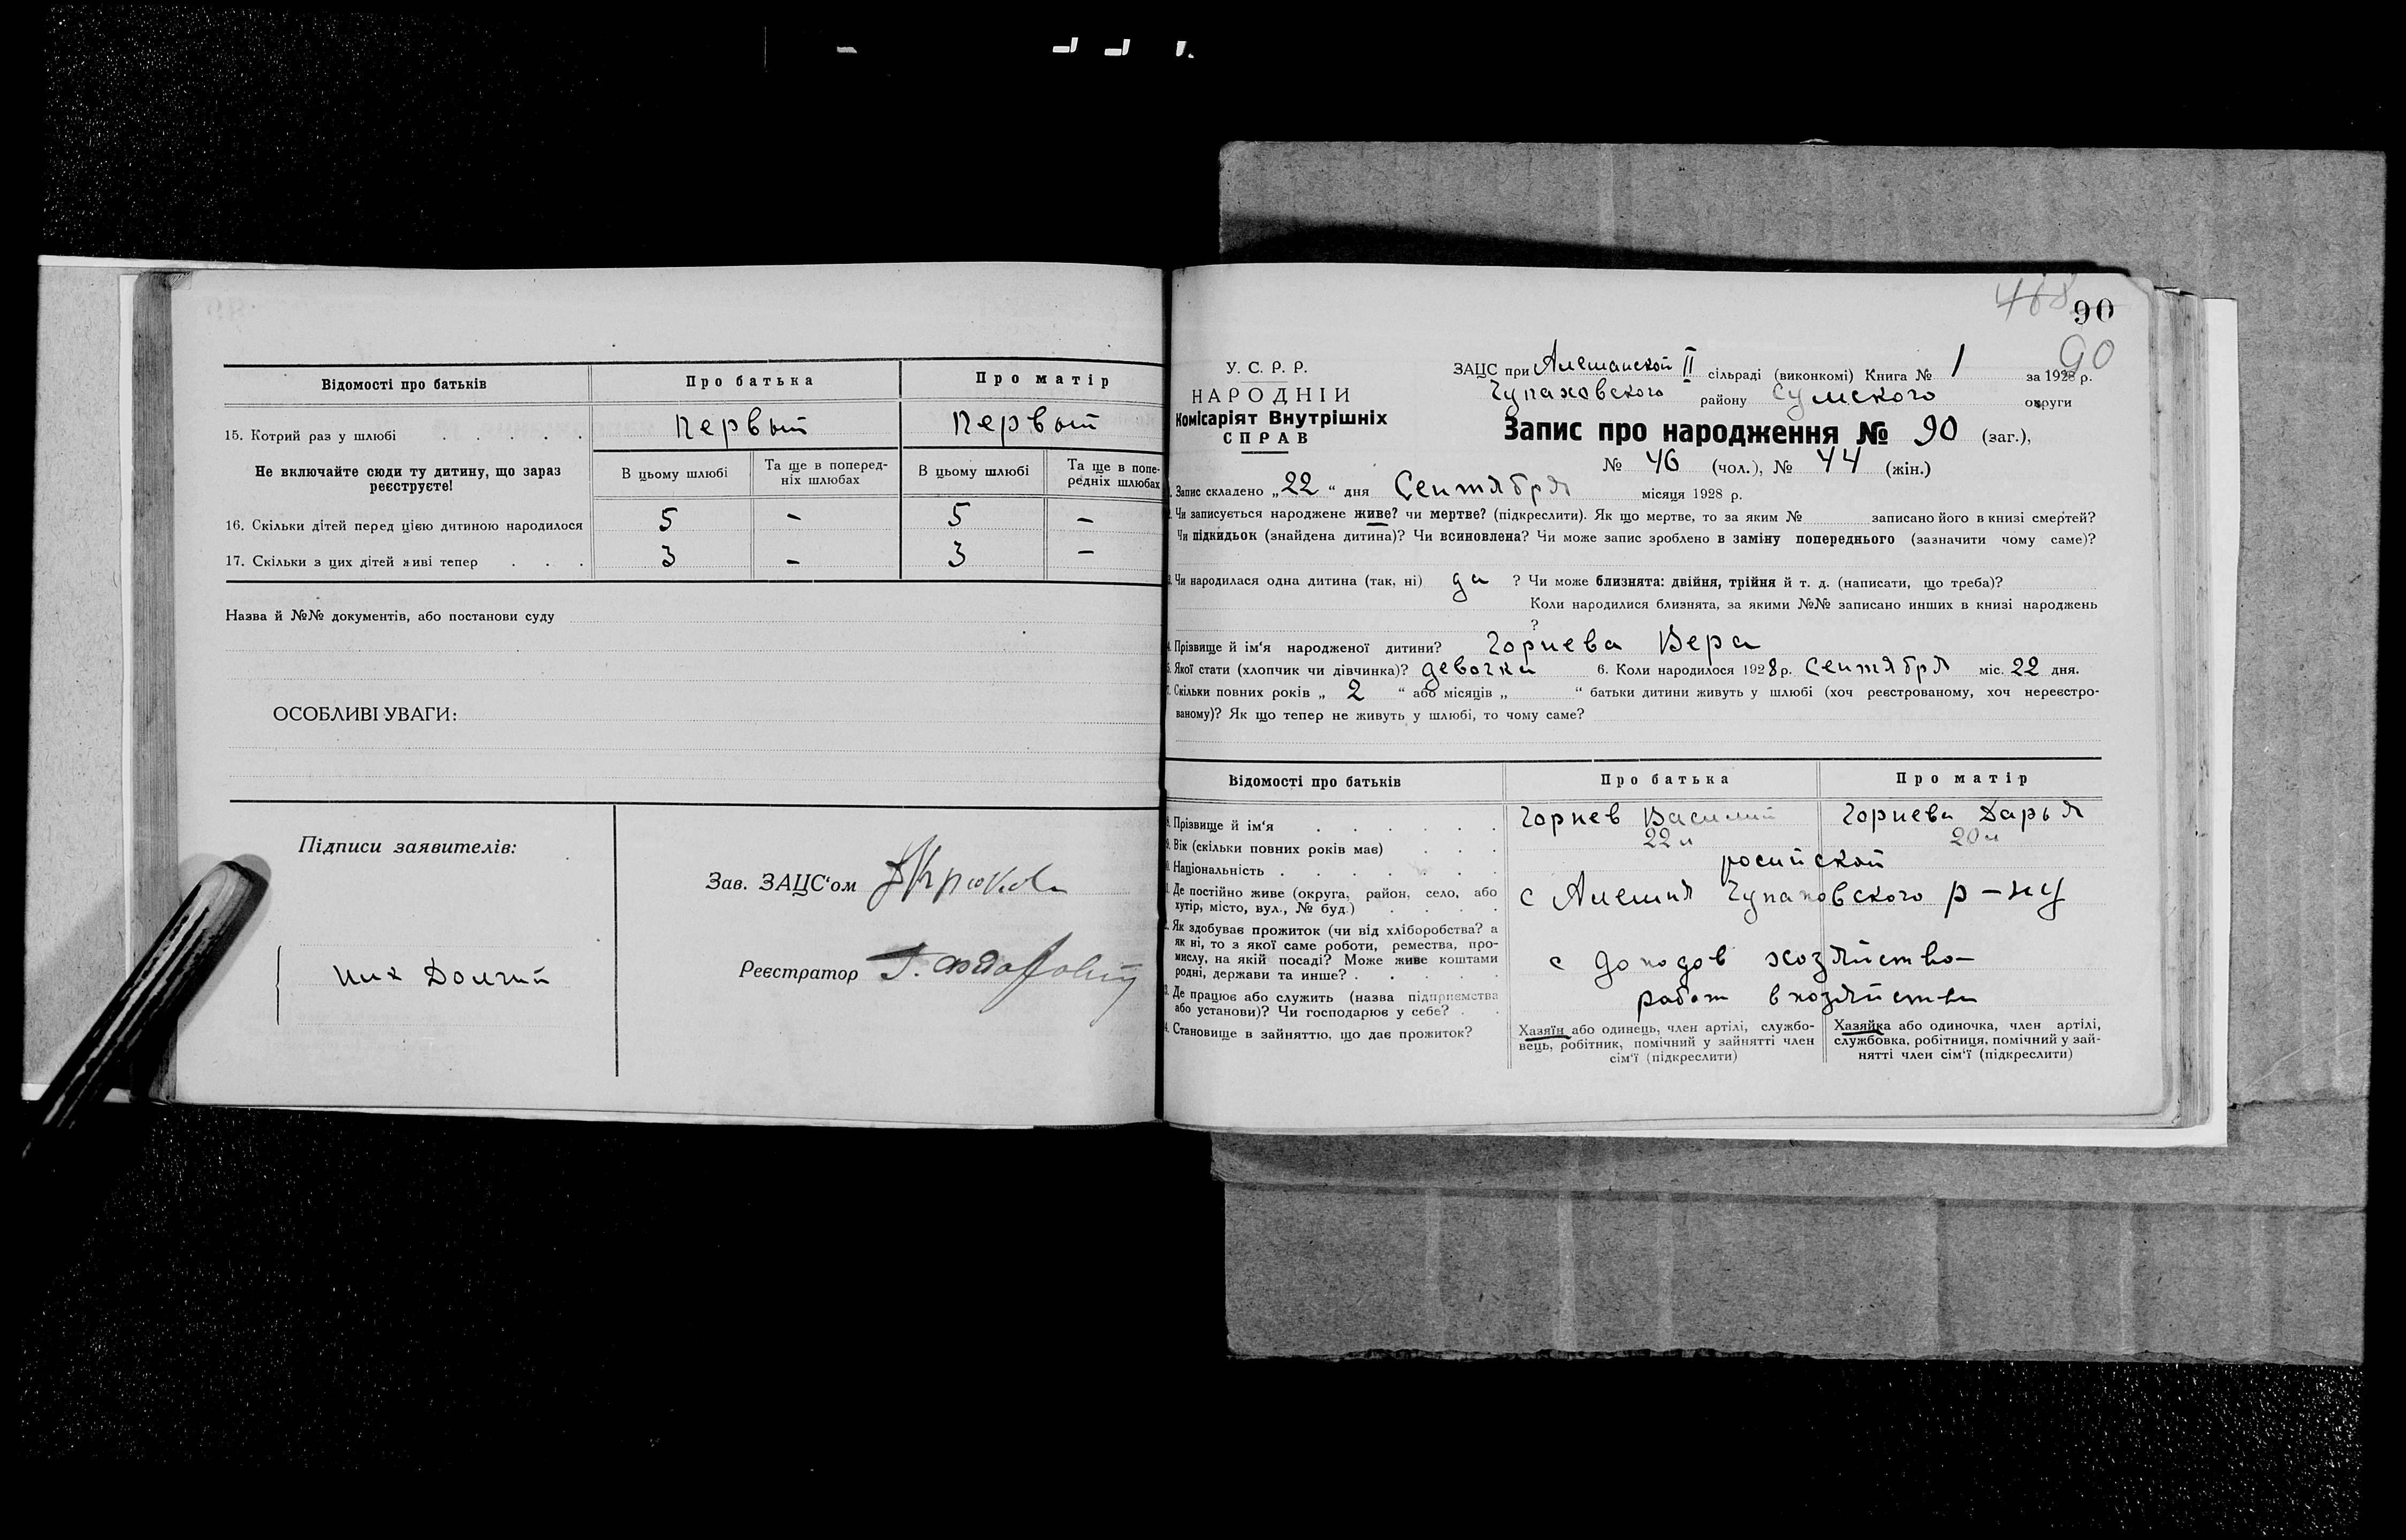 Відомості про батьків Про батька Про матір
15. Котрий раз у шлюбі . . . . . Первый Первый
Не включайте сюди ту дитину, що зараз реєструєте! В цьому шлюбі Та ще в поперед-ніх шлюбах В цьому шлюбі Та ще в попе-редніх шлюбах
16. Скільки дітей перед цією дитиною народилося 5 – 5 –
17. Скільки з цих дітей живі тепер . . . 3 – 3 –
Назва й №№ документів, або постанови суду
ОСОБЛИВІ УВАГИ:
Підписи заявителів:
Зав. ЗАЦС‘ом
Долгий
Реєстратор
468
90
90
У. С. Р. Р.
НАРОДНІЙ
Комісаріят Внутрішніх
СПРАВ
ЗАЦС при Алешанской II сільраді (виконкомі) Книга № 1 за 1928 р.
Чупаховского району Сумского округи
Запис про народження № 90 (заг.),
№ 46 (чол.), № 44 (жін.)
1. Запис складено „22“ дня Сентября місяця 1928 р.
2. Чи записується народжене живе? чи мертве? (підкреслити). Як що мертве, то за яким № записано його в книзі смертей?
Чи підкидьок (знайдена дитина)? Чи всиновлена? Чи може запис зроблено в заміну попереднього (зазначити чому саме)?
3. Чи народилася одна дитина (так, ні) да ? Чи може близнята: двійня, трійня й т. д. (написати, що треба)?
Коли народилися близнята, за якими №№ записано инших в книзі народжень
?
4. Прізвище й ім‘я народженої дитини? Горнева Вера
5. Якої стати (хлопчик чи дівчинка)? девочка 6. Коли народилося 1928 р. Сентября міс. 22 дня.
7. Скільки повних років „ 2 “ або місяців „ “ батьки дитини живуть у шлюбі (хоч реєстрованому, хоч нереєстро-
ваному)? Як що тепер не живуть у шлюбі, то чому саме?
Відомості про батьків Про батька Про матір
8. Прізвище й ім‘я . . . . . . Горнев Василий Горнева Дарья
9. Вік (скільки повних років має) . . . 22 л 20 л
10. Національність . . . . . . . росийской
11. Де постійно живе (округа, район, село, або
хутір, місто, вул., № буд.) . . . . с Алешня Чупаховского р–ну
12. Як здобуває прожиток (чи від хліборобства? а
як ні, то з якої саме роботи, ремества, про-
мислу, на якій посаді? Може живе коштами
родні, держави та инше? . . . . . с доходов хозяйства
13. Де працює або служить (назва підприємства
або установи)? Чи господарює у себе? . . работ в хозяйстве
14. Становище в зайняттю, що дає прожиток?
Хазяїн або одинець, член артілі, службо-
вець, робітник, помічний у зайнятті член
сім‘ї (підкреслити)
Хазяйка або одиночка, член артілі,
службовка, робітниця, помічний у зай-
нятті член сім‘ї (підкреслити)